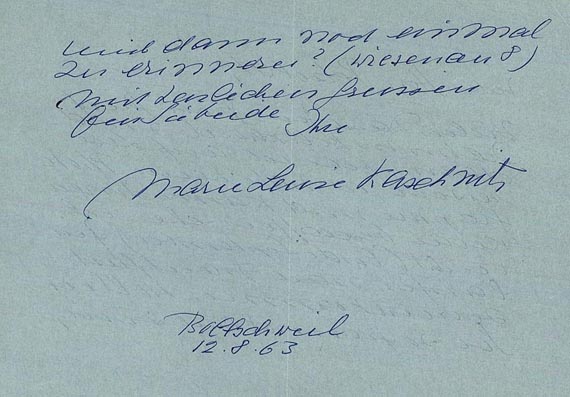 mich dann noch einmal
zu erinnern? (Wiesenau 8)
Mit herzlichen Grüssen
für Sie beide Ihre
Marie Luise Kaschnitz
Bollschweil
12.8.63